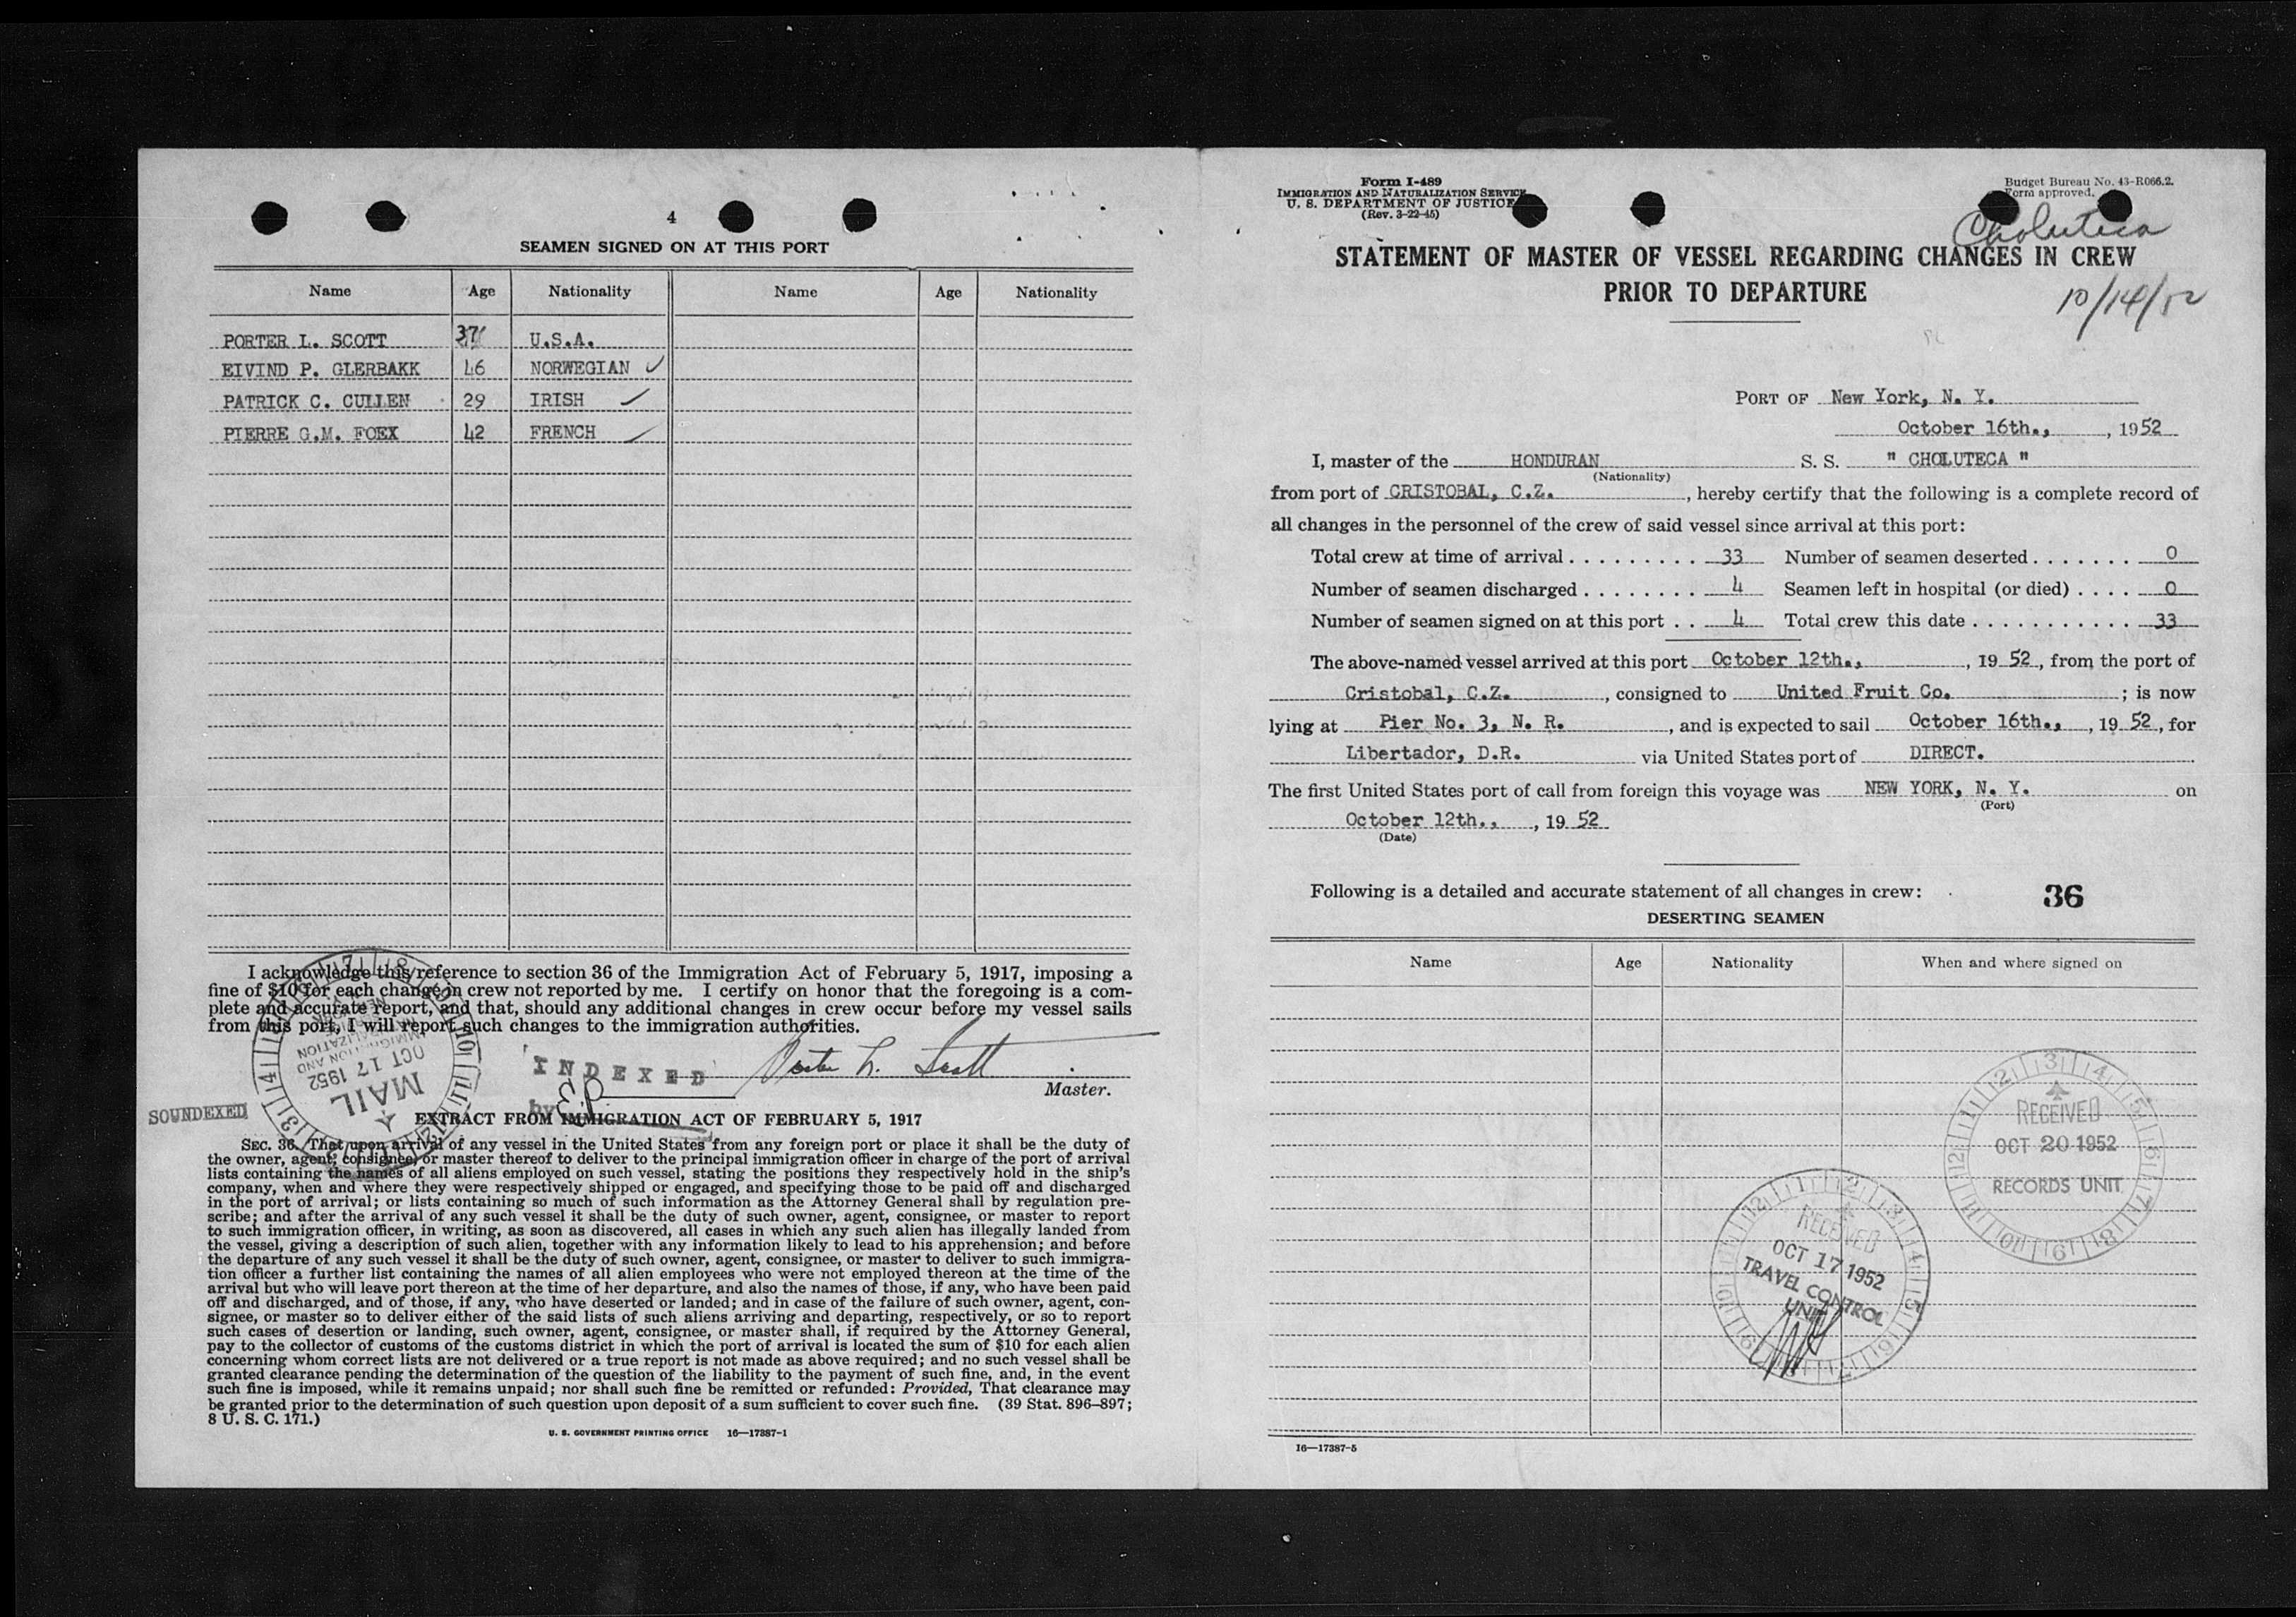 4
SEAMEN SIGNED ON AT THIS PORT
Name Age Nationality Name Age Nationality
PORTER L. SCOTT 37 U.S.A.
EIVIND P. GLERBAKK 46 NORWEGIAN ✓
PATRICK C. CULLEN 29 IRISH ✓
PIERRE G.M. FOEX 42 FRENCH ✓
I acknowledge this reference to section 36 of the Immigration Act of February 5, 1917, imposing a
fine of $10 for each change in crew not reported by me. I certify on honor that the foregoing is a com-
plete and accurate report, and that, should any additional changes in crew occur before my vessel sails
from this port, I will report such changes to the immigration authorities.
Porter L. Scott
Master.
INDEXED
by
SOUNDEXED
MAIL
OCT 17 1952
IMMIGRATION AND
NATURALIZATION
EXTRACT FROM IMMIGRATION ACT OF FEBRUARY 5, 1917
SEC. 36. That upon arrival of any vessel in the United States from any foreign port or place it shall be the duty of
the owner, agent, consignee, or master thereof to deliver to the principal immigration officer in charge of the port of arrival
lists containing the names of all aliens employed on such vessel, stating the positions they respectively hold in the ship's
company, when and where they were respectively shipped or engaged, and specifying those to be paid off and discharged
in the port of arrival; or lists containing so much of such information as the Attorney General shall by regulation pre-
scribe; and after the arrival of any such vessel it shall be the duty of such owner, agent, consignee, or master to report
to such immigration officer, in writing, as soon as discovered, all cases in which any such alien has illegally landed from
the vessel, giving a description of such alien, together with any information likely to lead to his apprehension; and before
the departure of any such vessel it shall be the duty of such owner, agent, consignee, or master to deliver to such immigra-
tion officer a further list containing the names of all alien employees who were not employed thereon at the time of the
arrival but who will leave port thereon at the time of her departure, and also the names of those, if any, who have been paid
off and discharged, and of those, if any, who have deserted or landed; and in case of the failure of such owner, agent, con-
signee, or master so to deliver either of the said lists of such aliens arriving and departing, respectively, or so to report
such cases of desertion or landing, such owner, agent, consignee, or master shall, if required by the Attorney General,
pay to the collector of customs of the customs district in which the port of arrival is located the sum of $10 for each alien
concerning whom correct lists are not delivered or a true report is not made as above required; and no such vessel shall be
granted clearance pending the determination of the question of the liability to the payment of such fine, and, in the event
such fine is imposed, while it remains unpaid; nor shall such fine be remitted or refunded: Provided, That clearance may
be granted prior to the determination of such question upon deposit of a sum sufficient to cover such fine. (39 Stat. 896–897;
8 U. S. C. 171.)
U. S. GOVERNMENT PRINTING OFFICE 16—17387-1
Form I-489
IMMIGRATION AND NATURALIZATION SERVICE
U. S. DEPARTMENT OF JUSTICE
(Rev. 3-22-45)
Budget Bureau No. 43-R066.2.
Form approved.
Choluteca
STATEMENT OF MASTER OF VESSEL REGARDING CHANGES IN CREW
PRIOR TO DEPARTURE
10/14/52
PORT OF New York, N. Y.
October 16th., , 1952
I, master of the HONDURAN S. S. " CHOLUTECA "
(Nationality)
from port of CRISTOBAL, C.Z. , hereby certify that the following is a complete record of
all changes in the personnel of the crew of said vessel since arrival at this port:
Total crew at time of arrival . . . . . . . . . 33 Number of seamen deserted . . . . . . . 0
Number of seamen discharged . . . . . . . . 4 Seamen left in hospital (or died) . . . . 0
Number of seamen signed on at this port . . 4 Total crew this date . . . . . . . . . . . 33
The above-named vessel arrived at this port October 12th., , 19 52, from the port of
Cristobal, C.Z. , consigned to United Fruit Co. ; is now
lying at Pier No. 3, N. R. , and is expected to sail October 16th., , 19 52, for
Libertador, D.R. via United States port of DIRECT.
The first United States port of call from foreign this voyage was NEW YORK, N. Y. on
(Port)
October 12th., , 19 52
(Date)
Following is a detailed and accurate statement of all changes in crew:
36
DESERTING SEAMEN
Name Age Nationality When and where signed on
RECEIVED
OCT 20 1952
RECORDS UNIT
RECEIVED
OCT 17 1952
TRAVEL CONTROL
UNIT
16—17387-5